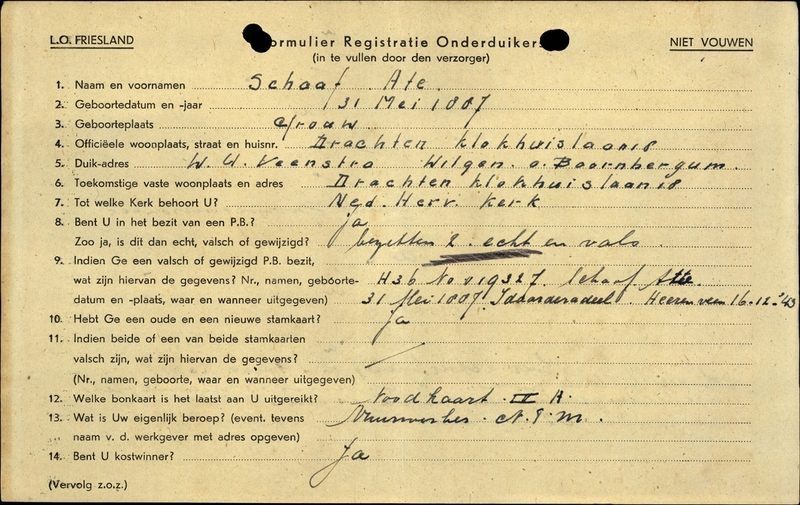 L.O. FRIESLAND
Formulier Registratie Onderduikers
NIET VOUWEN
(in te vullen door den verzorger)
1. Naam en voornamen Schaaf Ate.
2. Geboortedatum en -jaar 31 Mei 1887
3. Geboorteplaats Grouw
4. Officiëele woonplaats, straat en huisnr. Drachten Klokhuislaan 18
5. Duik-adres W. U. Veenstra Wilgen. o. Boornbergum.
6. Toekomstige vaste woonplaats en adres Drachten Klokhuislaan 18
7. Tot welke Kerk behoort U? Ned. Herv. Kerk
8. Bent U in het bezit van een P.B.? ja
Zoo ja, is dit dan echt, valsch of gewijzigd? bezitten 2. echt en vals.
9. Indien Ge een valsch of gewijzigd P.B. bezit,
wat zijn hiervan de gegevens? Nr., namen, geboorte- H36 No 019327. Schaaf Ate.
datum en -plaats, waar en wanneer uitgegeven) 31 Mei 1887 Idaarderadeel. Heerenveen 16-12-'43
10. Hebt Ge een oude en een nieuwe stamkaart? Ja
11. Indien beide of een van beide stamkaarten
valsch zijn, wat zijn hiervan de gegevens?
(Nr., namen, geboorte, waar en wanneer uitgegeven)
12. Welke bonkaart is het laatst aan U uitgereikt? Noodkaart. II A.
13. Wat is Uw eigenlijk beroep? (event. tevens N.T.M.
naam v. d. werkgever met adres opgeven)
14. Bent U kostwinner? Ja
(Vervolg z.o.z.)